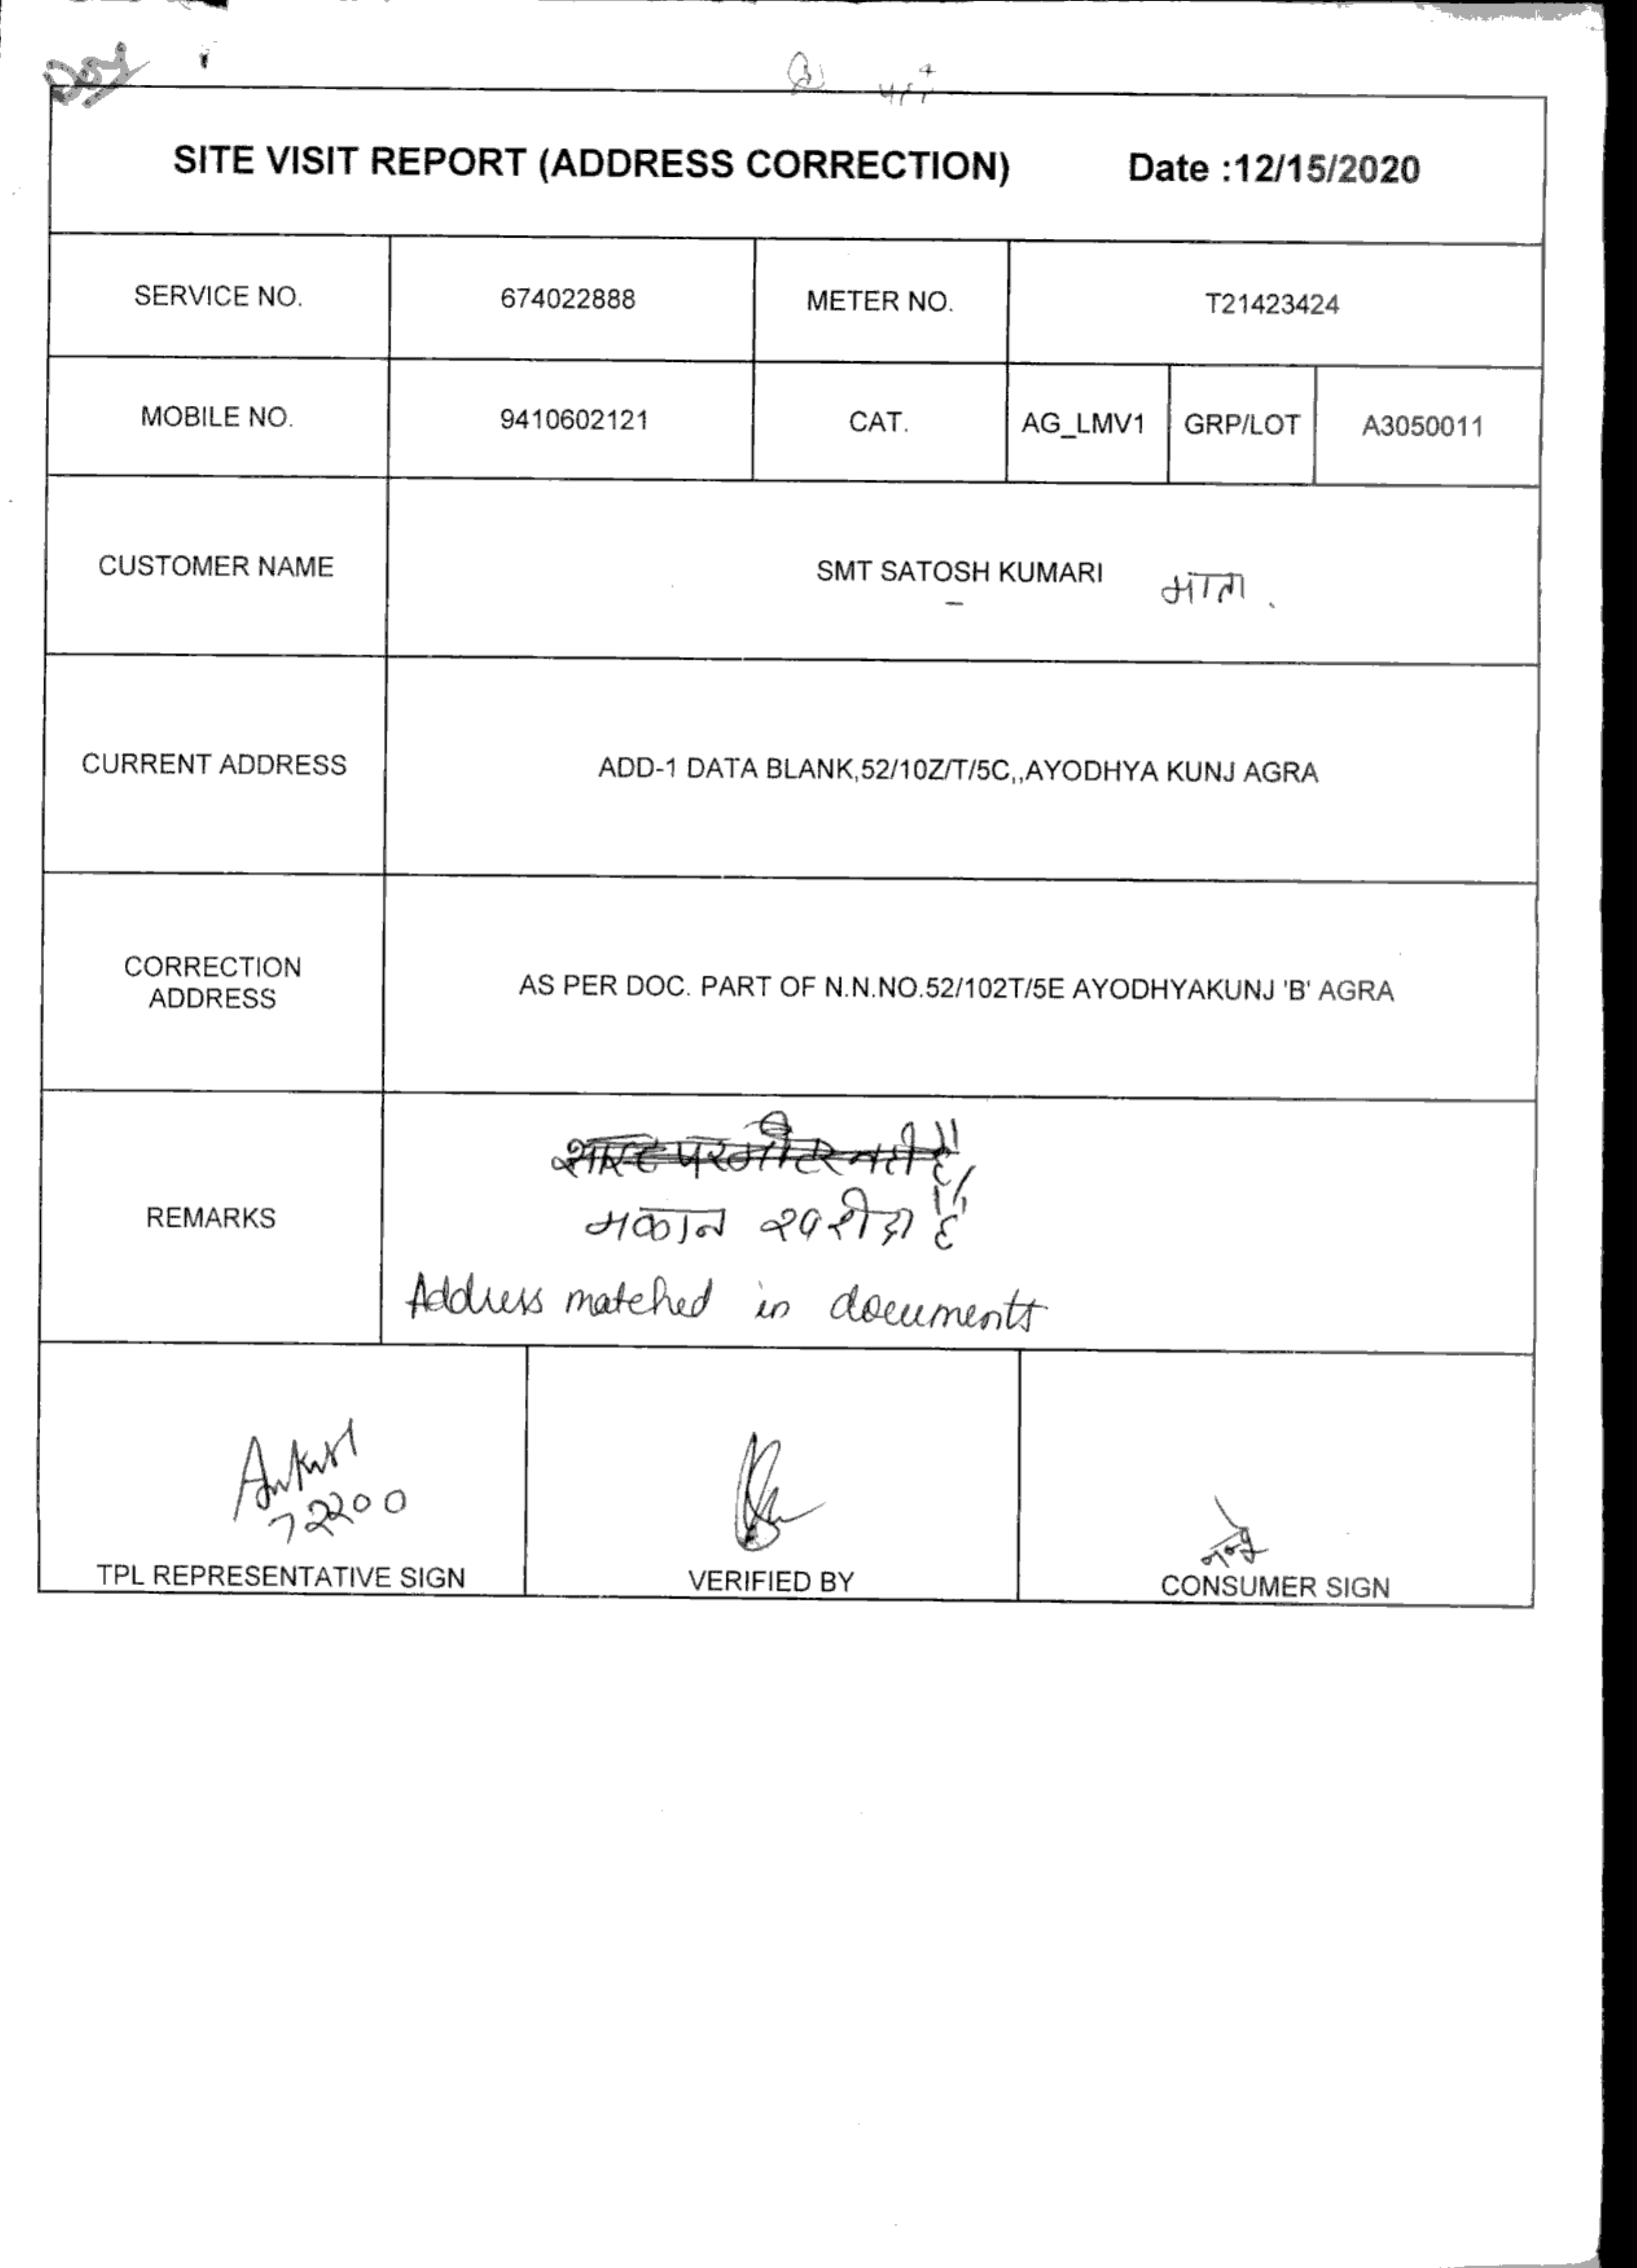 SITE VISIT REPORT (ADDRESS CORRECTION) Date :12/15/2020
SERVICE NO. 674022888 METER NO. T21423424
MOBILE NO. 9410602121 CAT. AG_LMV1 GRP/LOT A3050011
CUSTOMER NAME SMT SATOSH KUMARI माता
CURRENT ADDRESS ADD-1 DATA BLANK,52/10Z/T/5C,,AYODHYA KUNJ AGRA
CORRECTION
ADDRESS
AS PER DOC. PART OF N.N.NO.52/102T/5E AYODHYAKUNJ 'B' AGRA
REMARKS
मकान खरीदा है
Address matched in documents
Ankur
72200
TPL REPRESENTATIVE SIGN VERIFIED BY CONSUMER SIGN